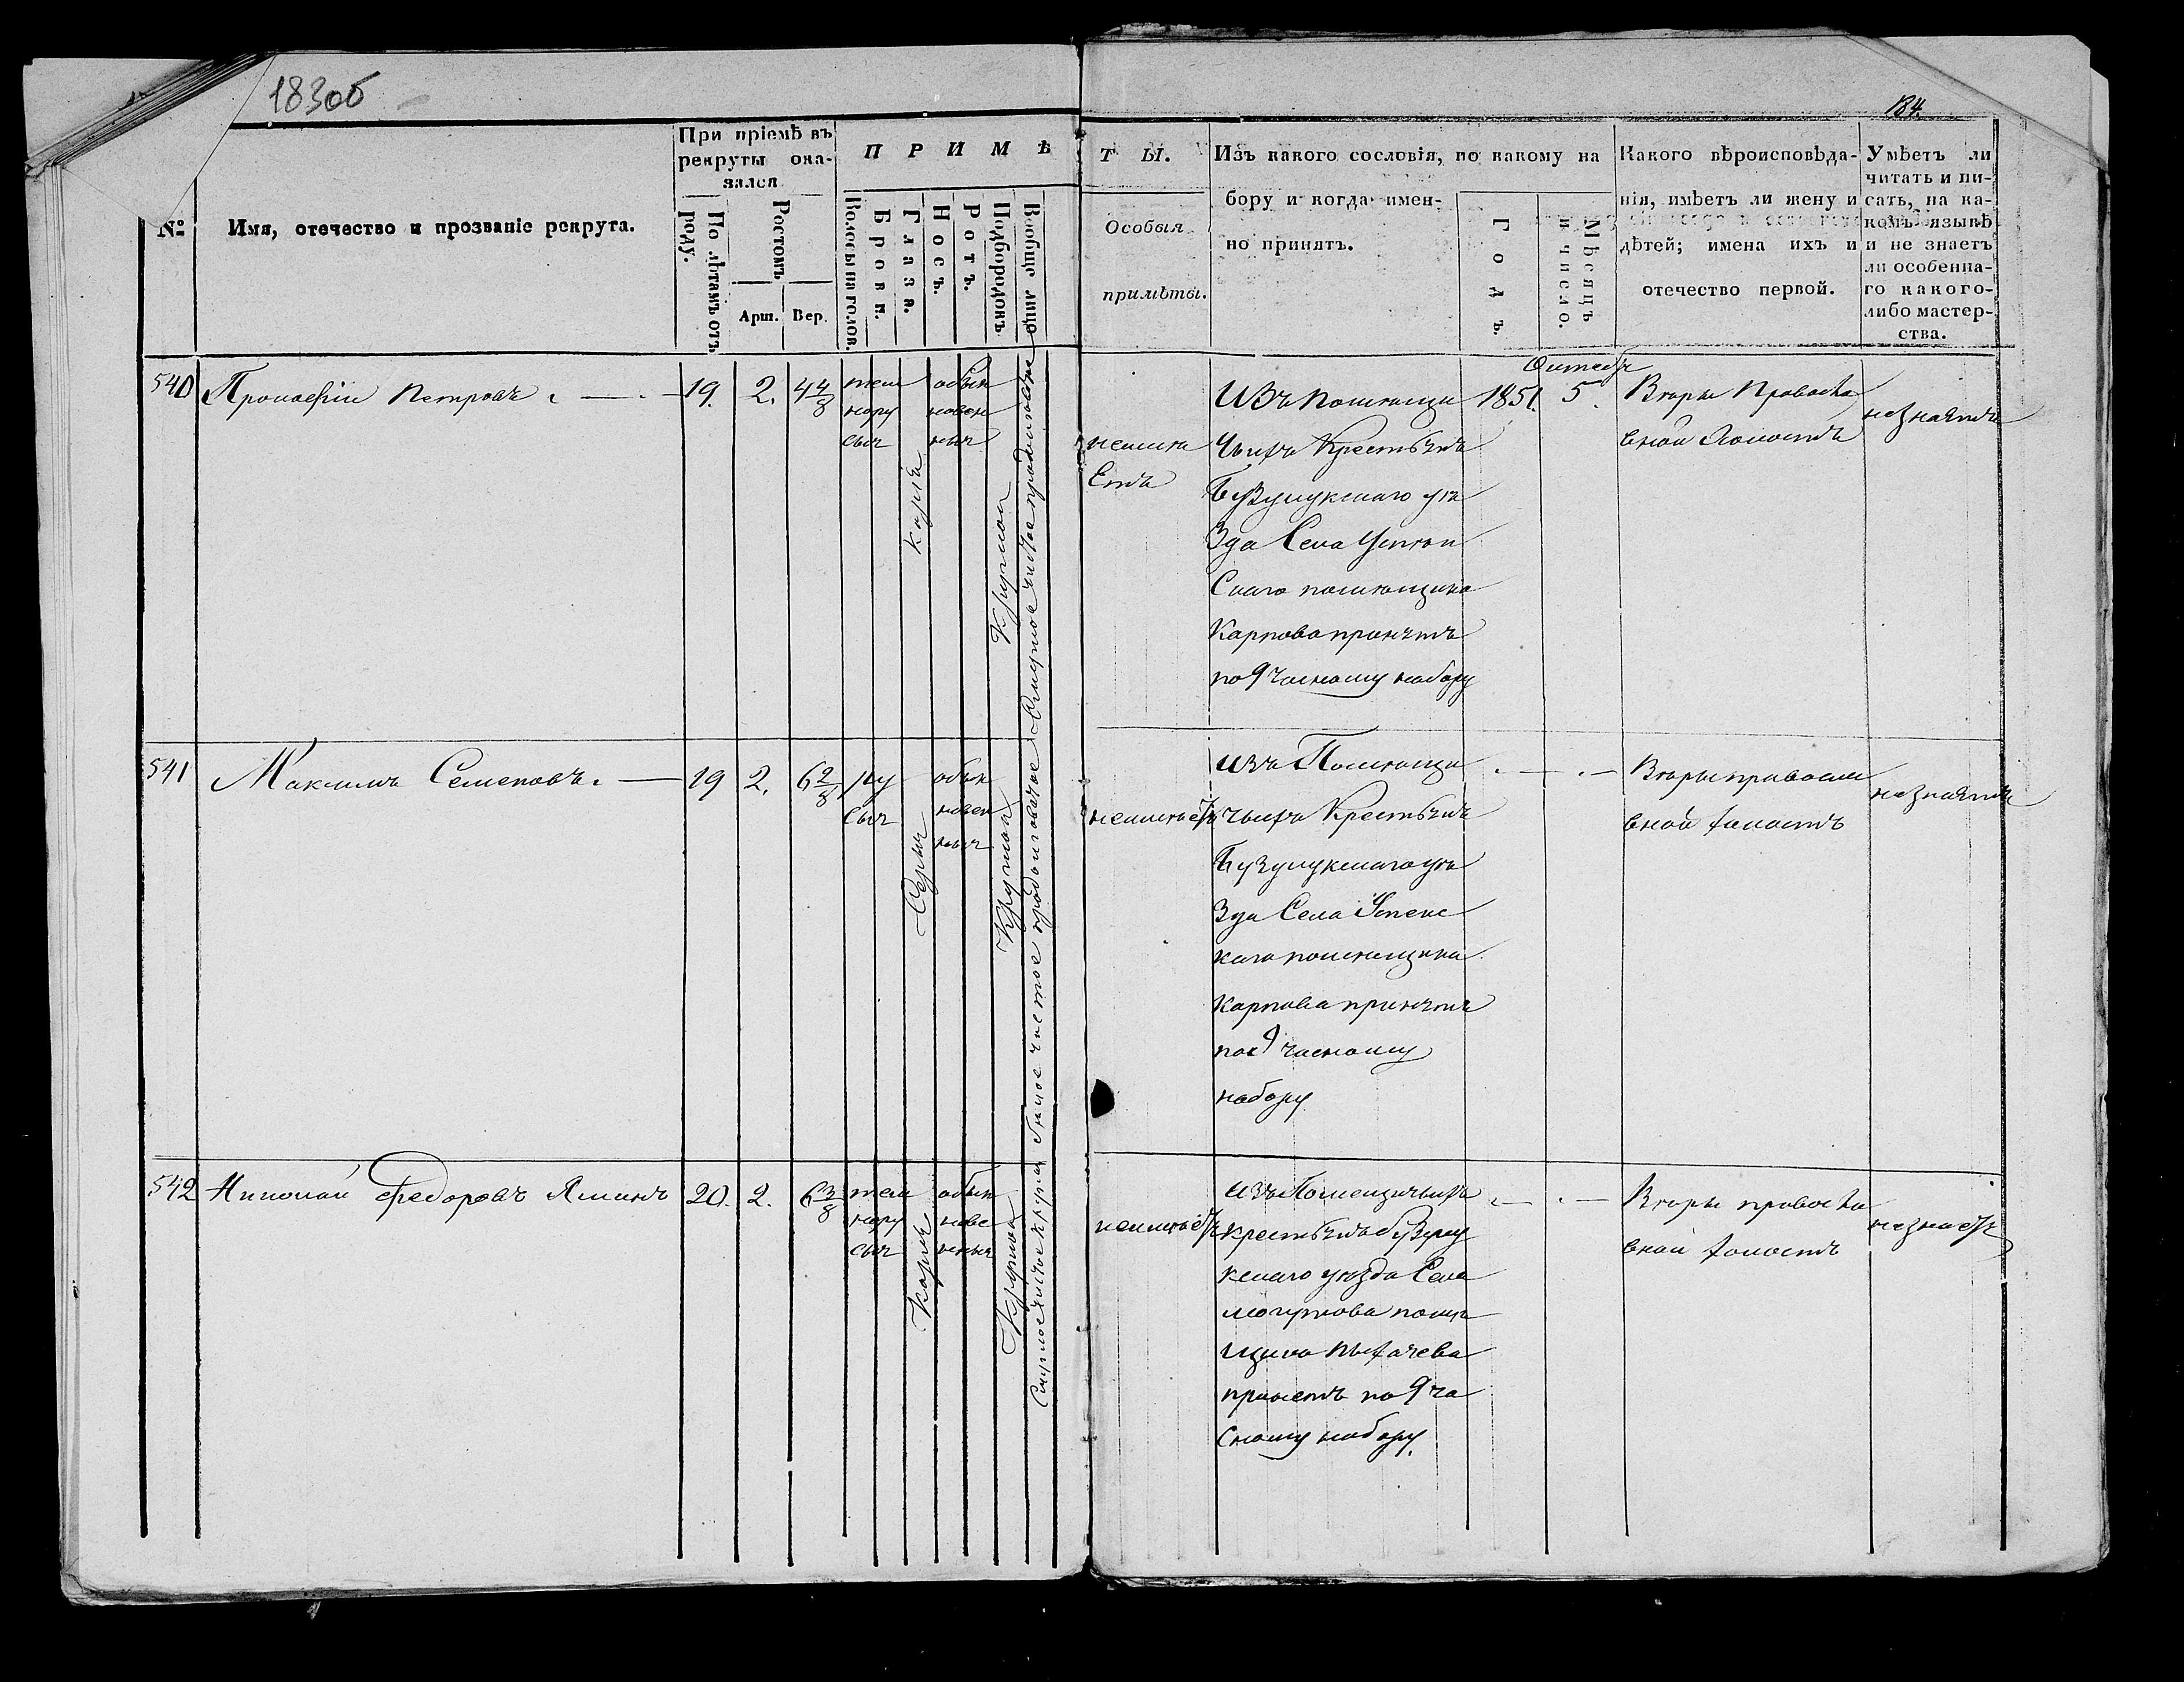 183об
184.
№
Имя, отечество и прозваніе рекрута.
При пріемѣ въ
рекруты ока-
зался
По лѣтамъ отъ
роду.
Ростомъ
Арш.
Вер.
ПРИМѢ
Волосы на голов.
Брови.
Глаза.
Носъ.
Ротъ.
Подбородокъ
Вообще лицо
ТЫ.
Особыя
примѣты.
Изъ какого сословія, по какому на
бору и когда имен-
но принятъ.
Годъ.
Мѣсяцъ
и число.
Какого вѣроисповѣда-
нія, имѣетъ ли жену и
дѣтей; имена ихъ и
отечество первой.
Умѣетъ ли
читать и пи-
сать, на ка-
комъ языкѣ
и не знаетъ
ли особенна-
го какого-
либо мастер-
ства.
540
Прокофій Петровъ
19.
2.
4 4/8
тем
нору
сыя
карія
обык
новен
ныя
Круглой
неимѣ
Етъ
Изъ помѣщи
Чьихъ Крестьянъ
Бузулукскаго уѣ
Зда Села Успен
Скаго помѣщика
Карпова принятъ
по 9 Часному набору
1851.
Октябр
5.
Вѣры Правосла
вной Холостъ
незнаетъ
541
Максимъ Семеновъ.
19
2.
6 2/8
ру
сыя
Серыя
обык
новен
ныя
Круглой
неимѣетъ
изъ Помѣщи
чьихъ Крестьянъ
Бузулукскаго уѣ
Зда Села Успенс
каго помѣщика
Карпова принятъ
пос 9 часному
набору
Вѣры правосла
вной холостъ
незнаетъ
542
Николай Федоровъ Яшинъ
20.
2.
6 3/8
тем
нору
сыя
Карія
обык
нове
нныя
Круглой
неимѣетъ
изъ Помещичьихъ
крестьянъ бузулу
кскаго уѣзда Села
помѣ
щика
принетъ по 9 ча
Сному набору.
Вѣры правосла
вной холостъ
незнаетъ